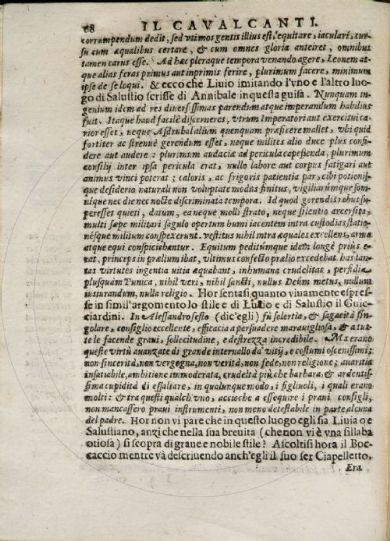 68 IL CAVALCANTI.
corrumpendum dedit, sed vt mos gentis illius est, equitare, iaculari, cur-
su cum æqualibus certare, & cum omnes gloria anteiret, omnibus
tamen carus esse. Ad hæc pleraque tempora venando agere, Leonem at-
que alias feras primus aut in primis ferire, plurimum facere, minimum
ipse de se loqui. & ecco che Liuio imitando l'vno e l'altro luo-
go di Salustio scrisse di Annibale in questa guisa. Nunquam in-
genium idem ad res diuersissimas parendum atque imperandum habilius
fuit. Itaque haud facilè discerneres, vtrum Imperatori an exercitui ca-
rior esset, neque Asdrubal alium quenquam præficere mallet, vbi quid
fortiter ac strenuè gerendum esset, neque milites alio duce plus confi-
dere aut audere: plurimum audacia ad pericula capessenda, plurimum
consilij inter ipsa pericula erat, nullo labore aut corpus fatigari aut
animus vinci poterat; caloris, ac frigoris patientia par, cibi potionis-
que desiderio naturali non voluptate modus finitus, vigiliarum que som-
nique nec die nec nocte discriminata tempora. Id quod gerendis rebus su-
peresset quieti, datum, ea neque molli strato, neque silentio arcersita,
multi sæpe militari sagulo opertum humi iacentem intra custodias statio-
nesque militum conspexerunt. vestitus nihil intra æquales excellens, arma
atque equi conspiciebantur. Equitum peditumque idem longè prius e-
rat, princeps in prælium ibat, vltimus conserto prælio excedebat. has tan-
tas virtutes ingentia vitia æquabant, inhumana crudelitas, perfidia
plusquam Punica, nihil veri, nihil sancti, nullus Deûm metus, nullum
iusiurandum, nulla religio. Hor sentasi quanto viuamente espres-
se in simil'argomento lo stile e di Liuio e di Salustio il Guic-
ciardini. In Alessandro sesto (dic'egli) fù solertia, & sagacità sin-
golare, consiglio eccellente, efficacia a persuadere marauigliosa, & a tut-
te le facende graui, sollecitudine, e destrezza incredibile. Ma erano
queste virtù auanzate di grande interuallo da' vitij, e costumi oscenissimi;
non sincerità, non vergogna, non verità, non fede, non religione; auaritia
insatiabile, ambitione immoderata, crudeltà più che barbara, & ardentis-
sima cupidità di essaltare, in qualunque modo, i figliuoli, i quali erano
molti: & tra questi qualch'vno, accioche a essequire i praui consigli,
non mancassero praui instrumenti, non meno detestabile in parte alcuna
del padre. Hor non vi pare che in questo luogo egli sia Liuia o e
Salustiano, anzi che nella sua breuità (che non vi è vna sillaba
otiosa) si scopra di graue e nobile stile? Ascoltisi hora il Boc-
caccio mentre và descriuendo anch'egli il suo ser Ciapelletto.
Era